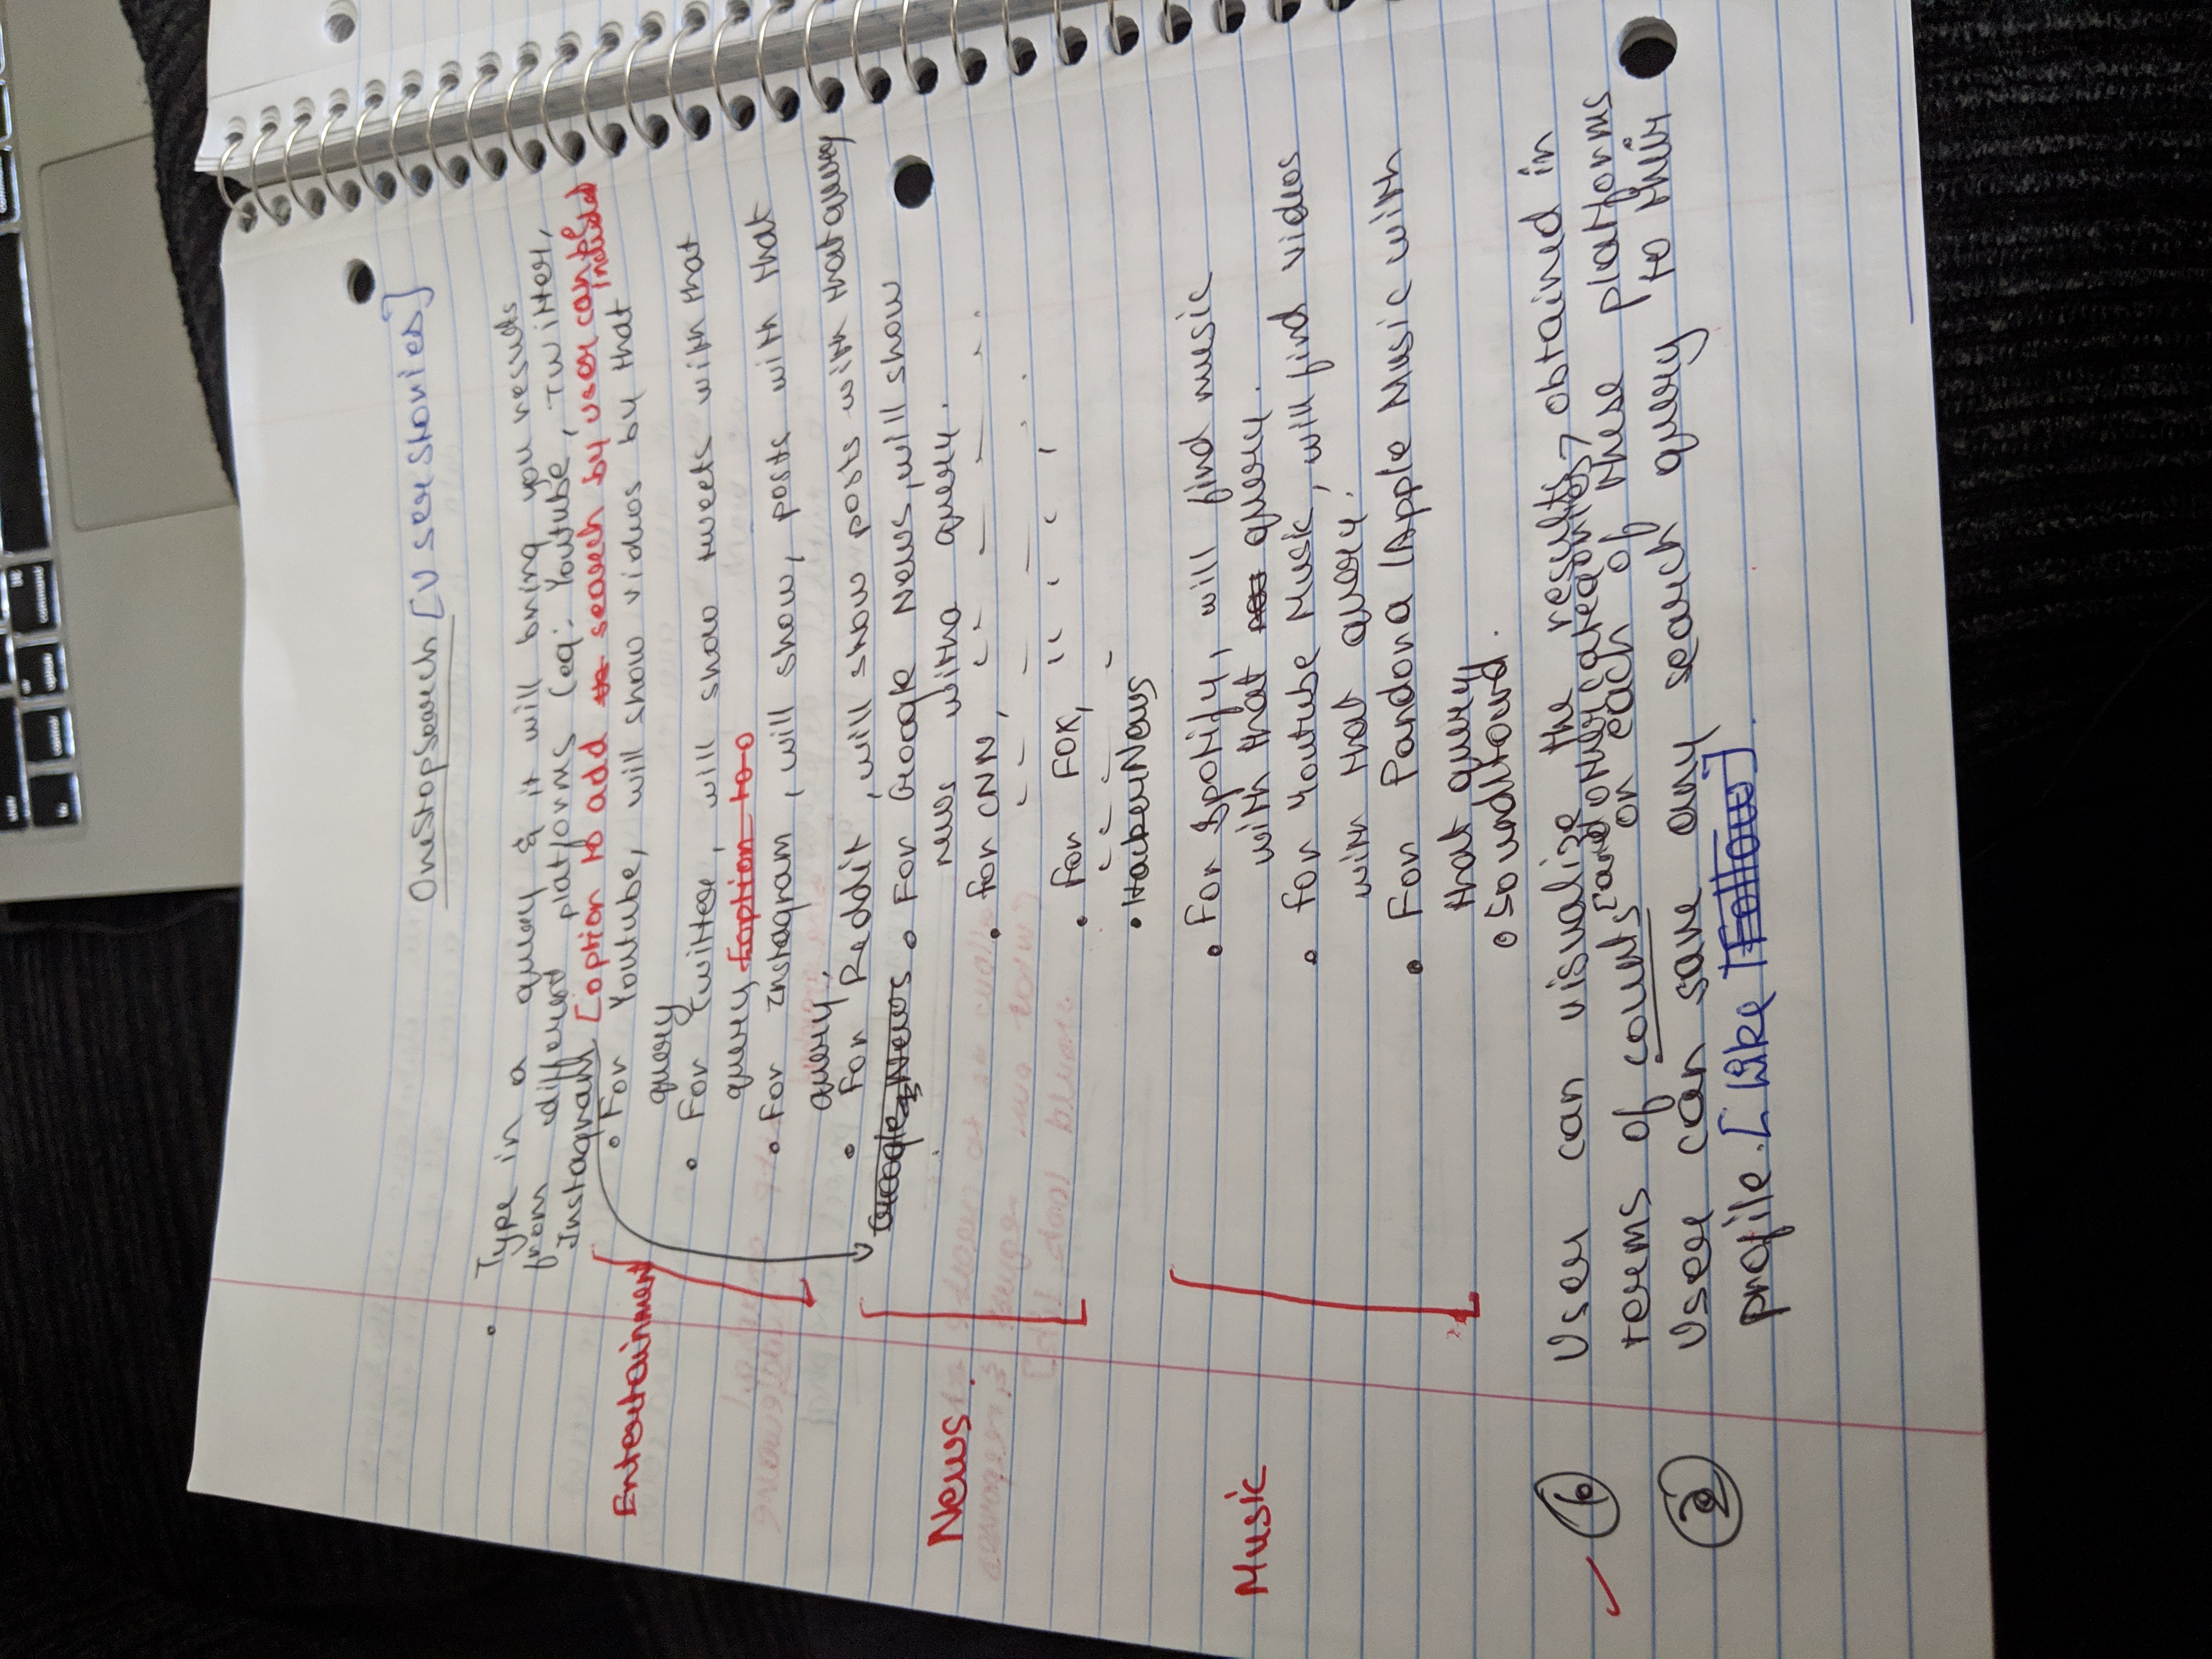 OneStopSearch [User Stories]
• Type in a query & it will bring you results
from different platforms (eg: Youtube, Twitter,
Instagram [option to add search by user can be
included
Entertainment
• For Youtube, will show videos by that
query
• For Twitter, will show tweets with that
query, [option to o
• For Instagram, will show, posts with that
query.
• For Reddit, will show posts with that query
Google News • For Google News, will show
News.
news with a query.
• For CNN, " — — — " .
" — — — . .
• For FOX, " ' ' '
• HackerNews
• For Spotify, will find music
Music
with that query.
• For Youtube Music, will find videos
with that query.
• For Pandora /Apple Music with
that query
• Soundcloud.
① User can visualize the results, obtained in
[and other categories]
terms of counts on each of these platforms
② User can save any search query to their
profile. [Like /Follow].
control
option
command